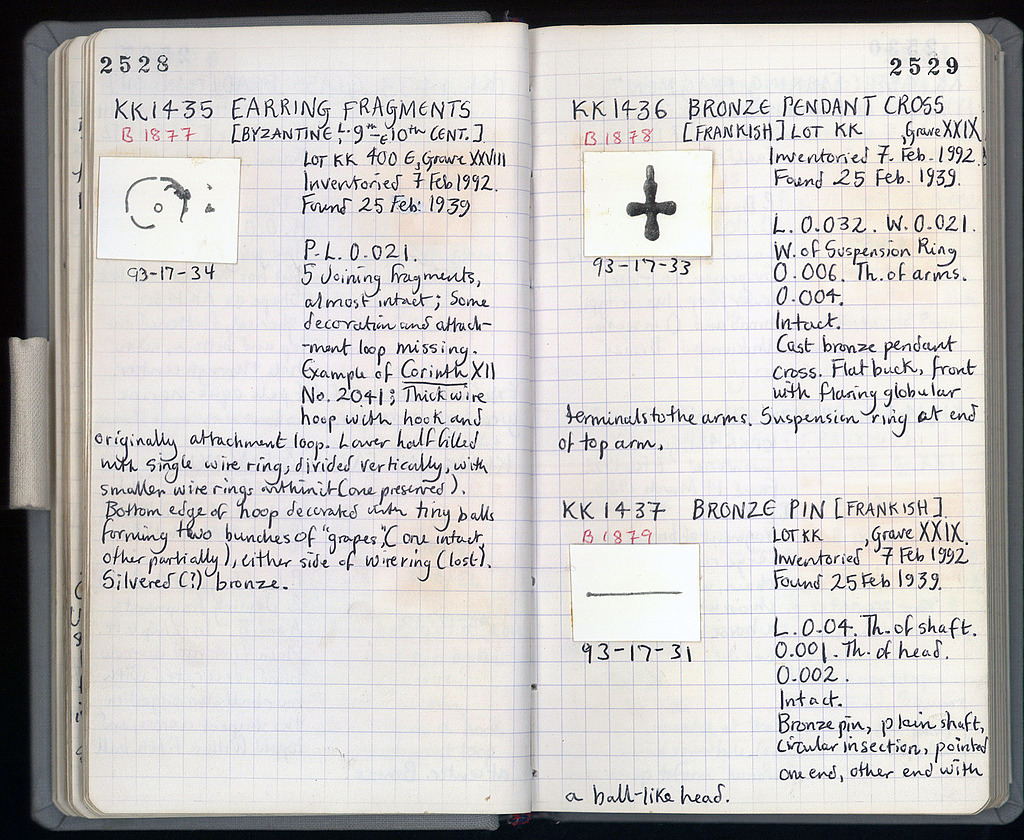 2528
KK1435 EARRING FRAGMENTS
B 1877 [BYZANTINE, 9th-E 10th CENT.]
LOT KK 400 E, Grave XXVIII
Inventoried 7 Feb 1992.
Found 25 Feb. 1939
93-17-34
P.L. 0.021.
5 Joining fragments,
almost intact; Some
decoration and attach-
-ment loop missing.
Example of Corinth XII
No. 2041; Thick wire
hoop with hook and
originally attachment loop. Lower half filled
with single wire ring, divided vertically, with
smaller wire rings within it (one preserved).
Bottom edge of hoop decorated with tiny balls
forming two bunches of "grapes" (one intact,
other partially), either side of wire ring (lost).
Silvered (?) bronze.
2529
KK1436 BRONZE PENDANT CROSS
B 1878 [FRANKISH] LOT KK , Grave XXIX
Inventoried 7. Feb. 1992.
Found 25 Feb. 1939.
93-17-33
L. 0.032. W. 0.021.
W. of Suspension Ring
0.006. Th. of arms.
0.004.
Intact.
Cast bronze pendant
cross. Flat back, front
with flaring globular
terminals to the arms. Suspension ring at end
of top arm.
KK 1437 BRONZE PIN [FRANKISH].
B 1879 LOT KK , Grave XXIX.
Inventoried 7 Feb 1992
Found 25 Feb 1939.
93-17-31
L. 0.04. Th. of shaft.
0.001. Th. of head.
0.002.
Intact.
Bronze pin, plain shaft,
circular in section, pointed
one end, other end with
a ball-like head.